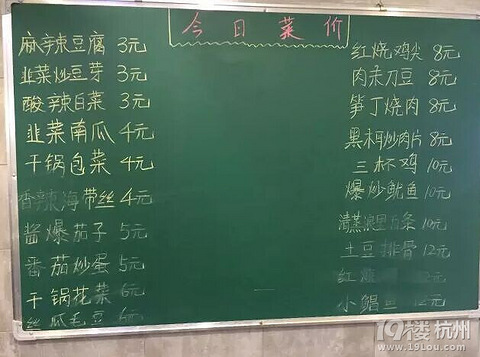 今日菜价
麻辣豆腐 3元
韭菜炒豆芽 3元
酸辣白菜 3元
韭菜南瓜 4元
干锅包菜 4元
香辣海带丝 4元
酱爆茄子 5元
番茄炒蛋 5元
干锅花菜 6元
丝瓜毛豆 6元
红烧鸡尖 8元
肉未刀豆 8元
笋丁烧肉 8元
黑木耳炒肉片 8元
三杯鸡 10元
爆炒鱿鱼 10元
清蒸浪里白条 10元
土豆排骨 12元
红 12元
小鲳鱼 12元
19楼 杭州
www.19lou.com